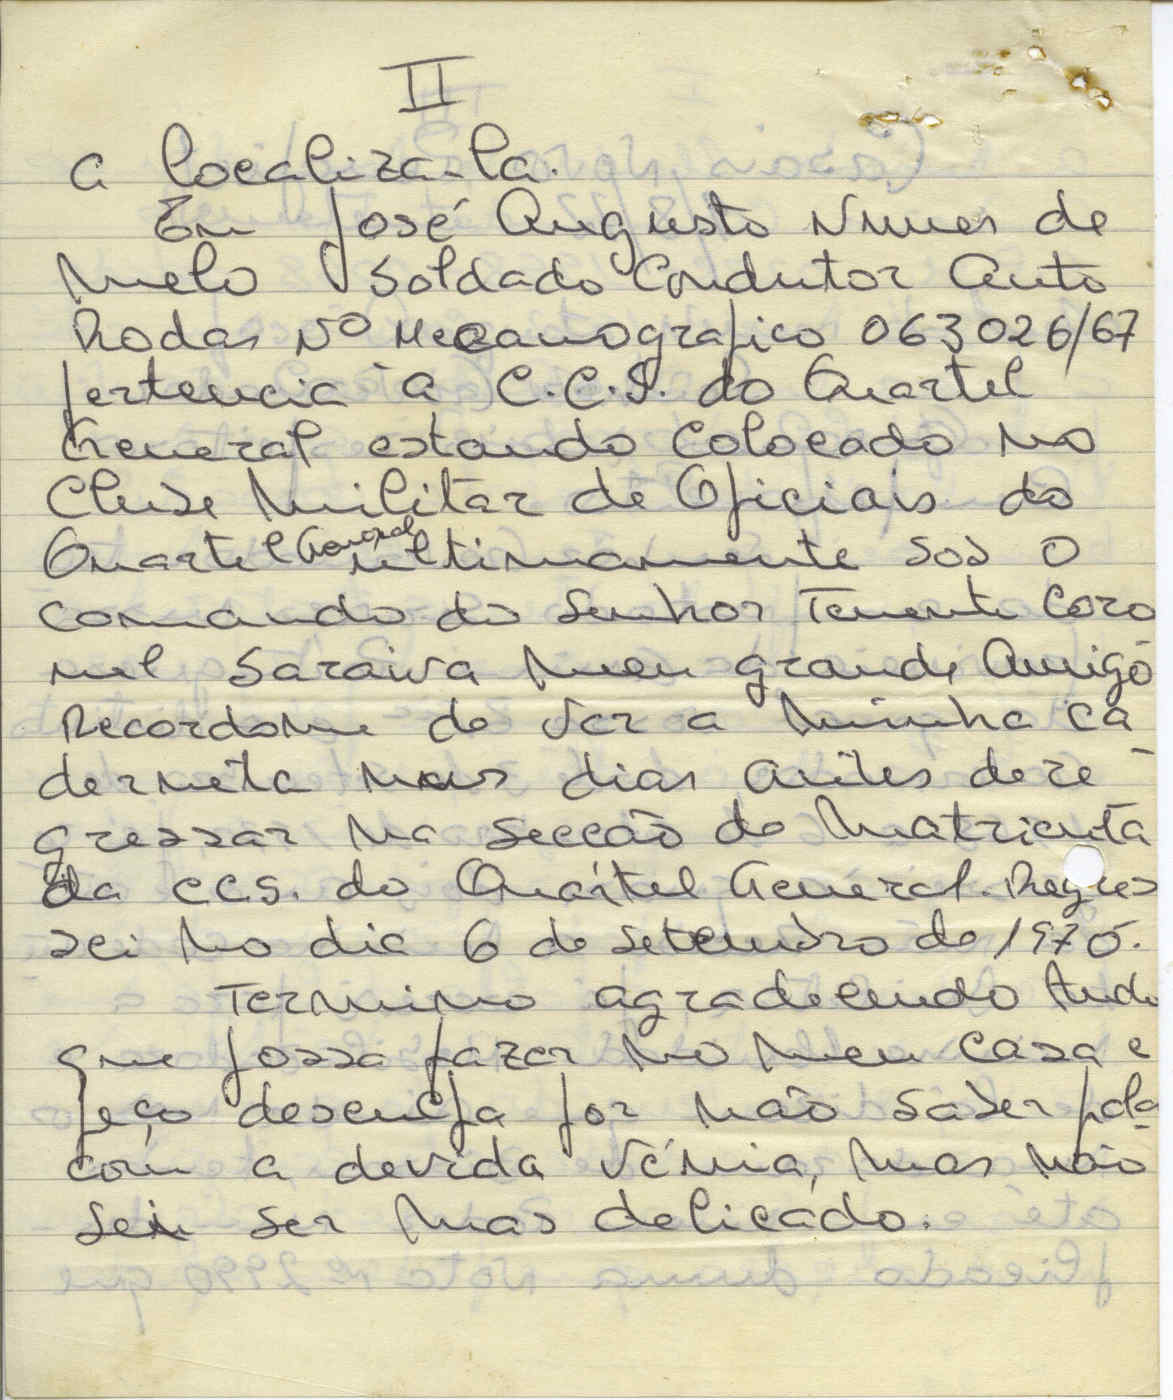 II
a localiza-la.
Eu José Augusto Nunes de
Melo Soldado Condutor Auto
Rodas Nº Mecanografico 063026/67
pertencia á C.C.S. do Quartel
General estando Colocado no
Clube Militar de Oficiais do
Quartel General ultimamente sob o
comando do Senhor Tenente Coro
nel Saraiva Meu grande Amigo
Recordome de ver a Minha ca
derneta nos dias antes de re-
gressar na Secção de Matricula
da CCS. do Quartel General. Regres
sei no dia 6 de Setembro de 1970.
Termino agradecendo tudo
que possa fazer no meu Casa e
peço desculpa por não saber fala
com a devida vénia, mas não
sei ser mas delicado.